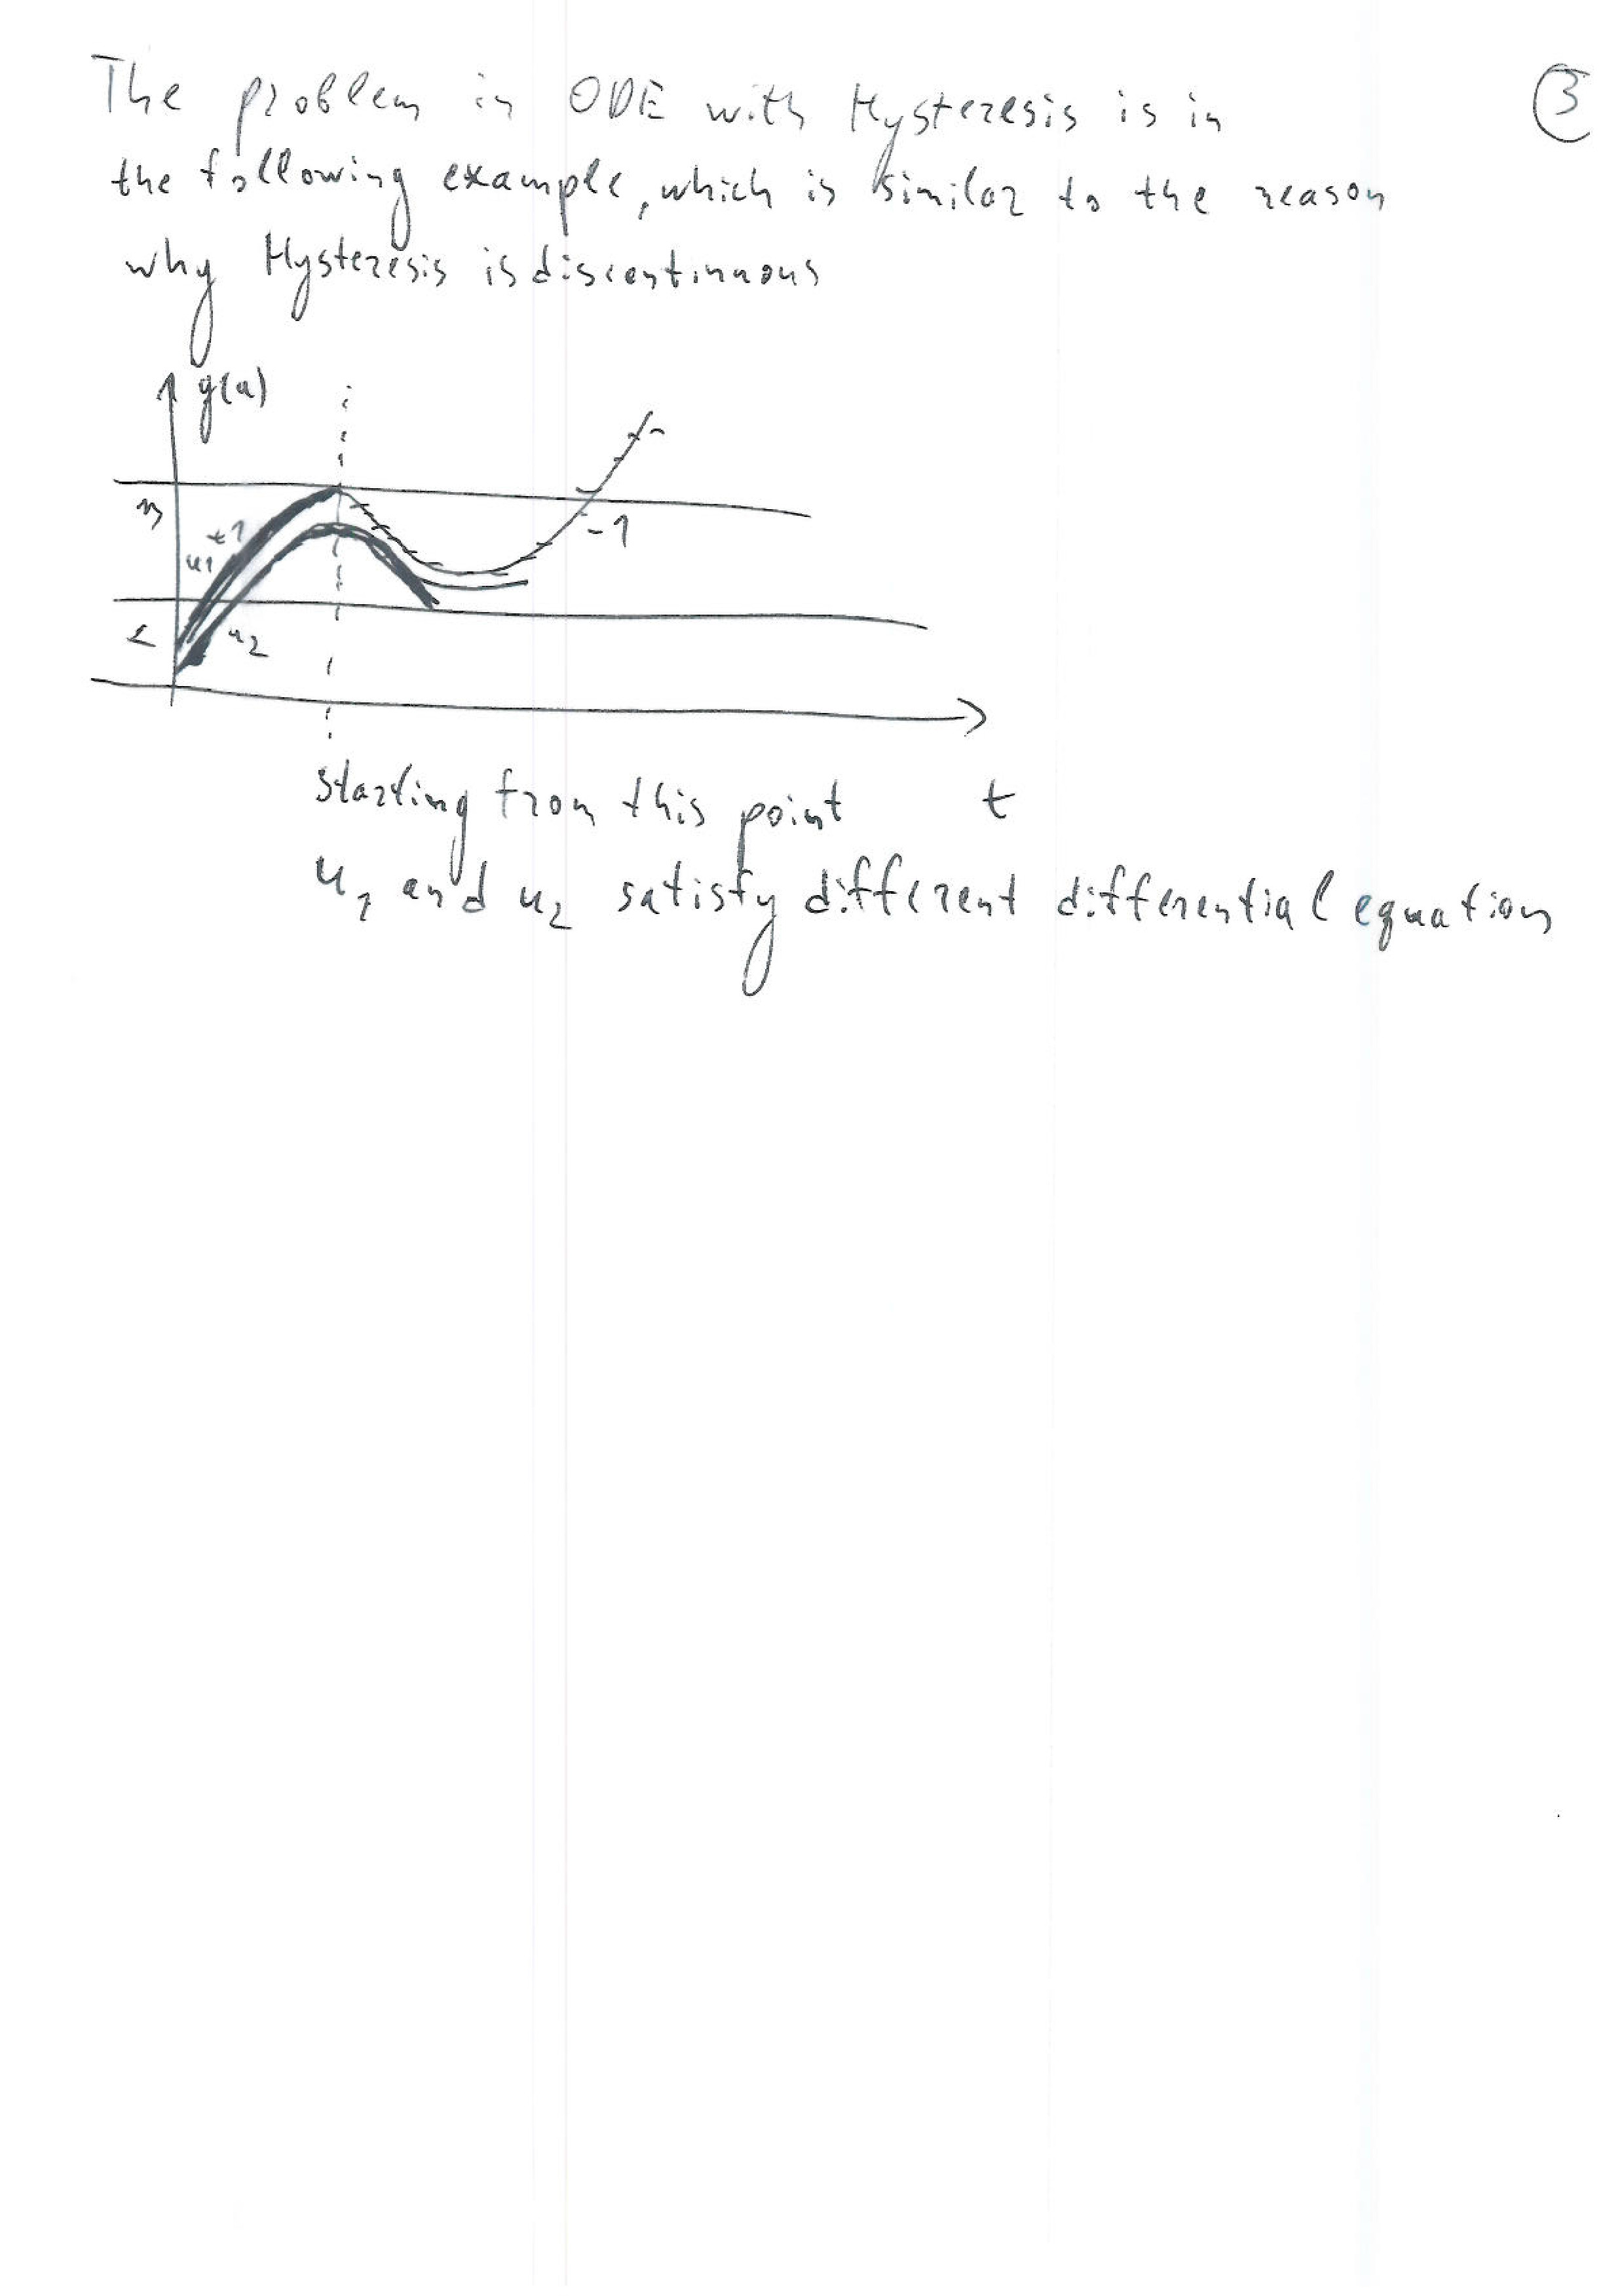 The problem in ODE with Hysteresis is in
3
the following example, which is similar to the reason
why Hysteresis is discontinuous
g(u)
+1
u1
-1
u2
t
starting from this point
u1 and u2 satisfy different differential equation